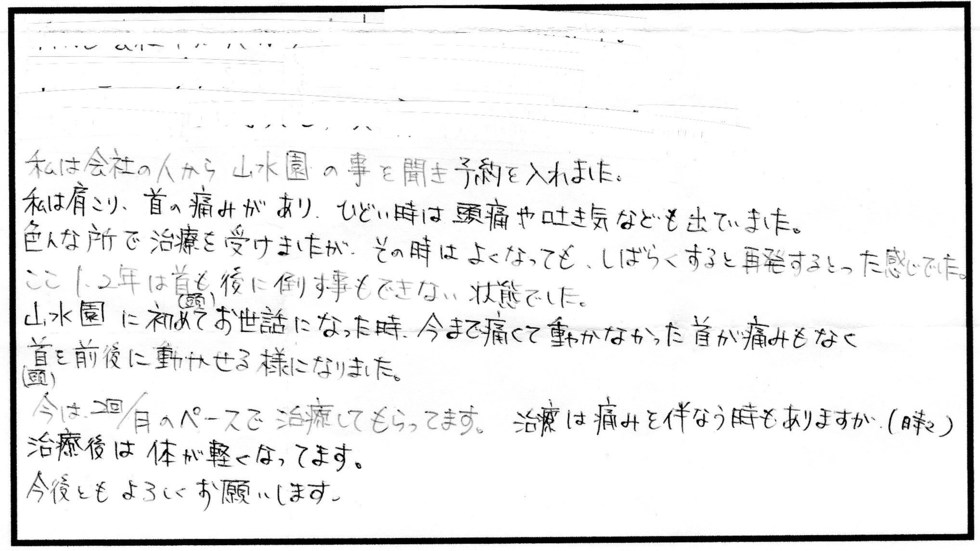 私は会社の人から山水園の事を聞き予約を入れました。
私は肩こり、首の痛みがあり、ひどい時は頭痛や吐き気なども出ていました。
色んな所で治療を受けましたが、その時はよくなっても、しばらくすると再発するとった感じでした。
ここ1、2年は首も後に倒す事もできない状態でした。
(頭)
山水園に初めてお世話になった時、今まで痛くて動かなかった首が痛みもなく
首を前後に動かせる様になりました。
(頭)
今は、2回/月のペースで治療してもらってます。治療は痛みを伴なう時もありますが、(時々)
治療後は体が軽くなってます。
今後ともよろしくお願いします。